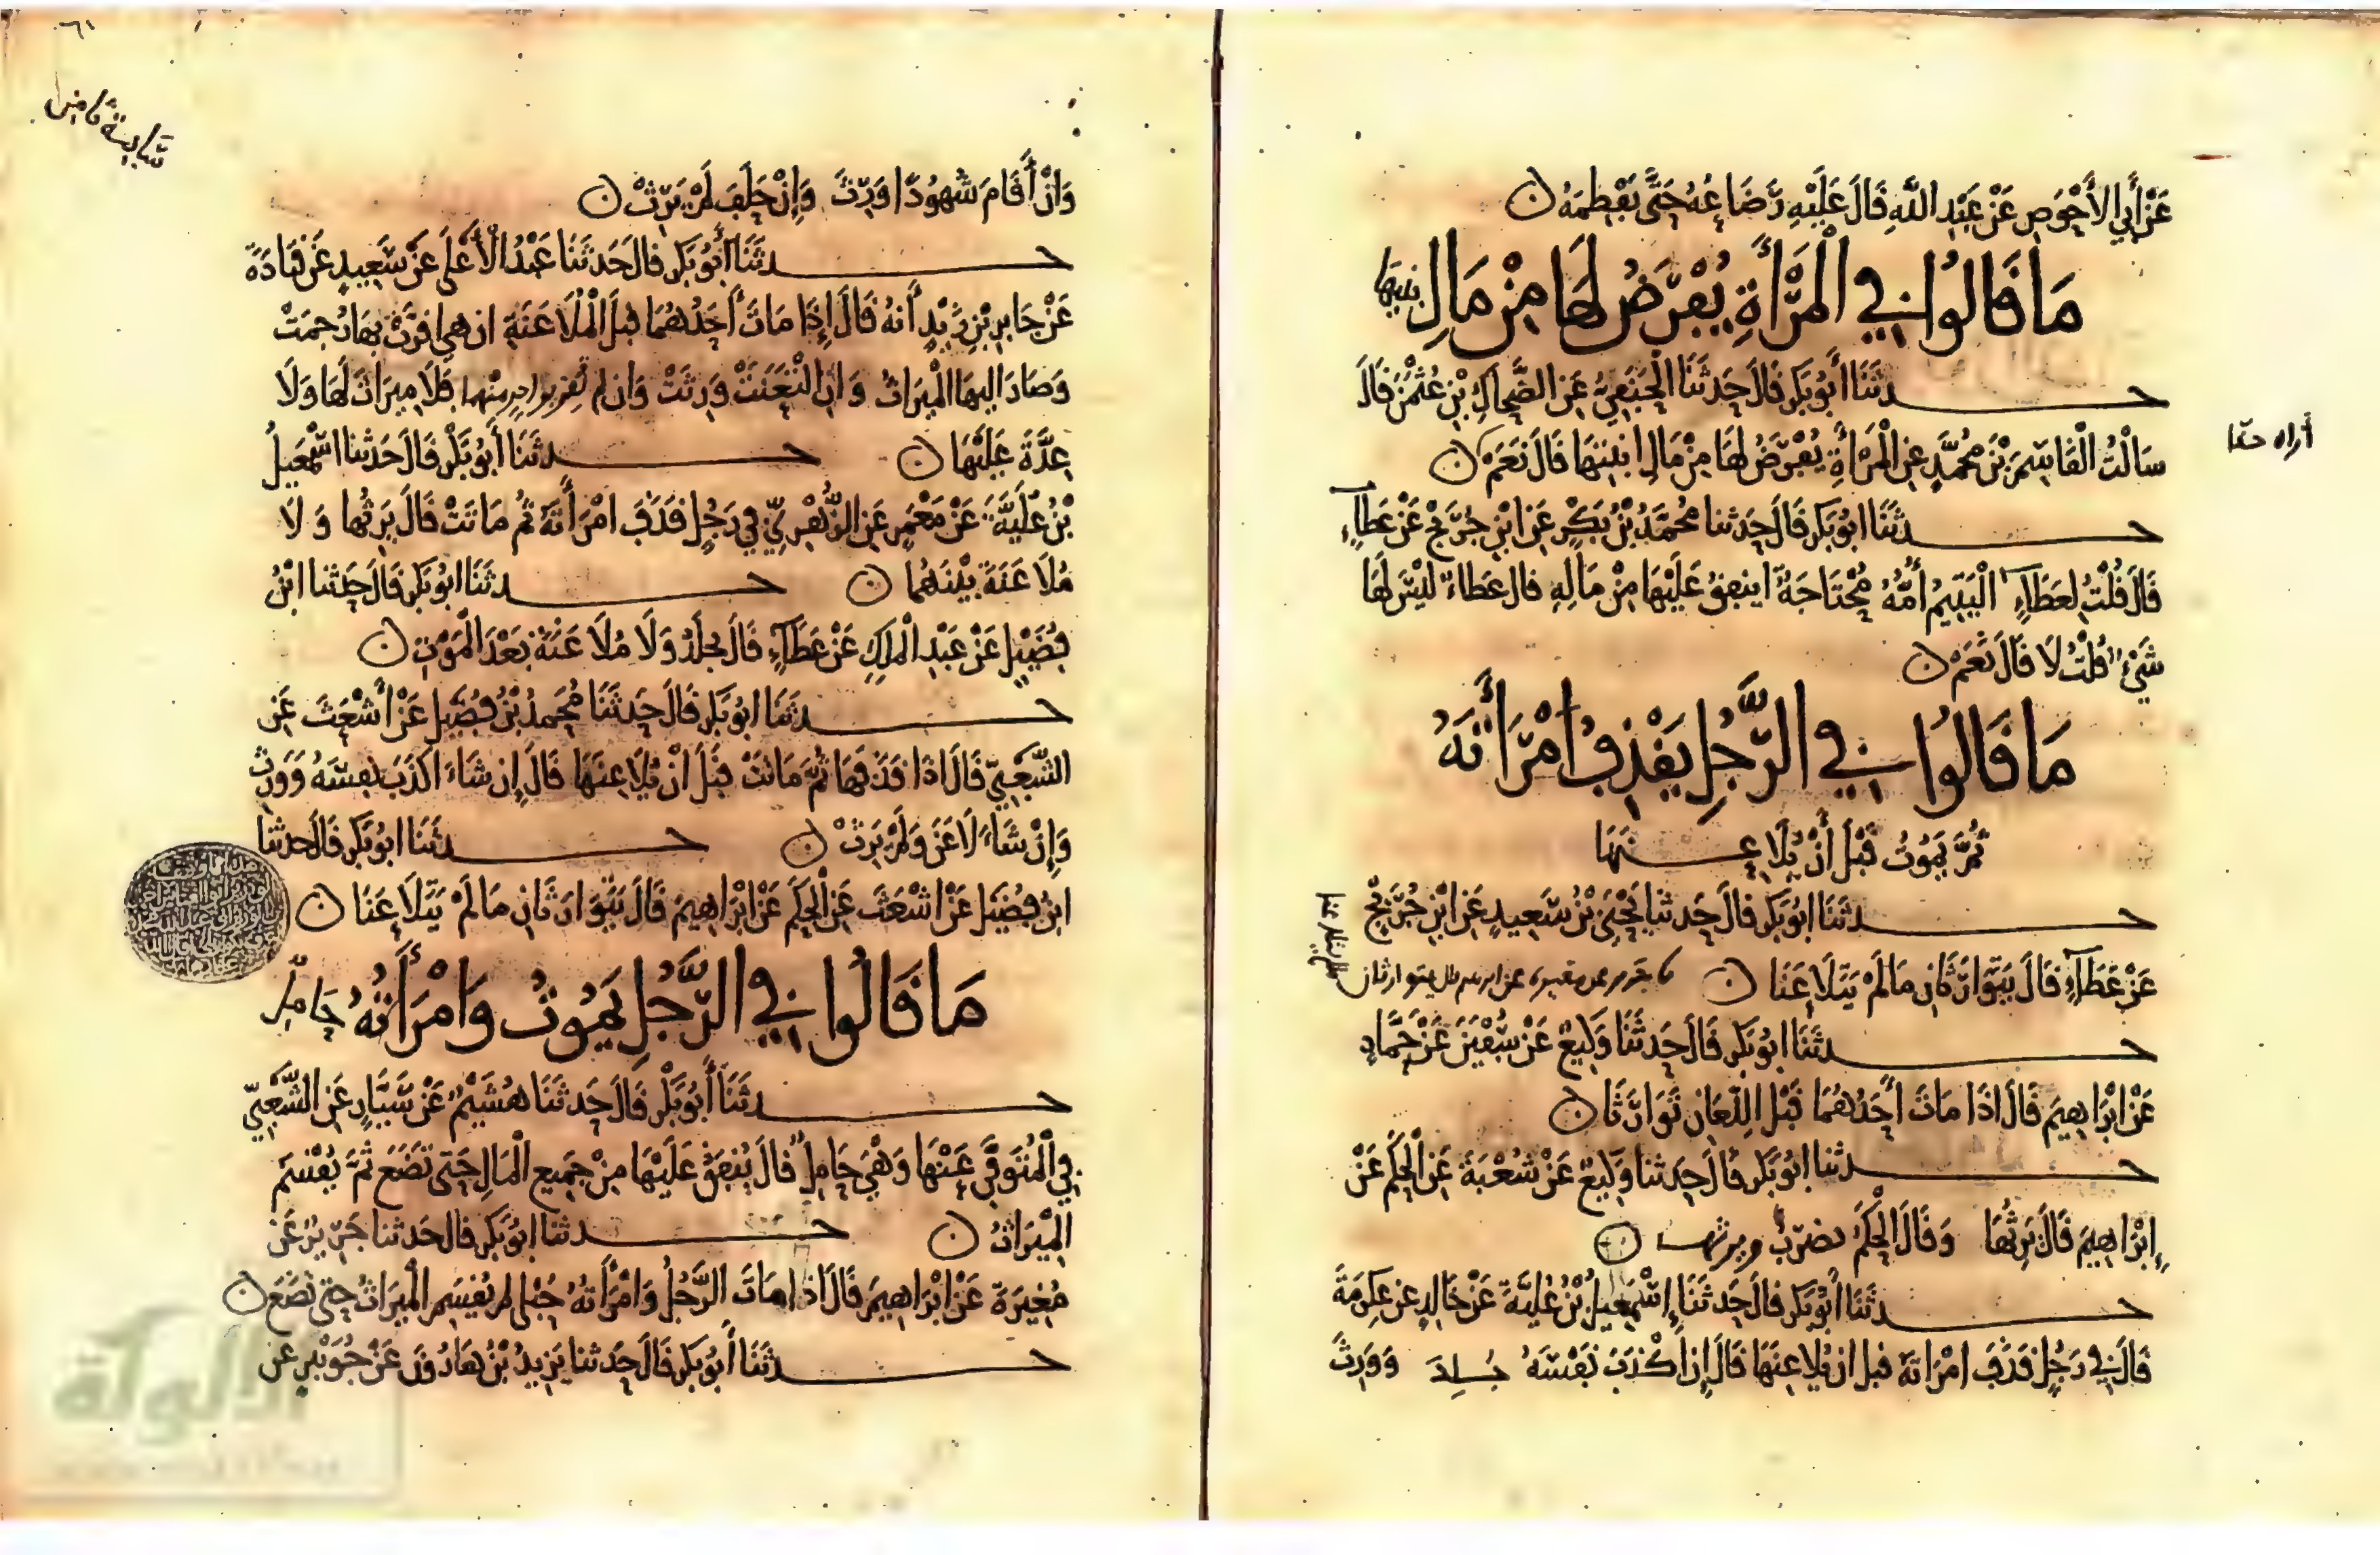 عَنْ أَبِي الأَحْوَصِ عَنْ عَبْدِ اللَّهِ قَالَ عَلَيْهِ رَضَاعُهُ حَتَّى تَفْطِمَهُ ن
مَا قَالُوا فِي الْمَرْأَةِ يُفْرَضُ لَهَا مِنْ مَالِ ابنتها
حدثَنَا أَبُو بَكر قَالَ حَدثَنَا الْحَنَفِيُّ عَنِ الضَّحَّاكِ بْنِ عُثْمٰنَ قَالَ
سَالْتُ الْقَاسِمَ بْنَ مُحَمَّدٍ عَنِ الْمَرْأَةِ يُفْرَضُ لَهَا مِنْ مَالِ ابْنَتِهَا قَالَ نَعَمْ ن
أراه حقا
حدثَنَا ابُو بَكر قَالَ حَدثنا مُحَمَّدُ بْنُ بَكْرٍ عَنِ ابْنِ جُرَيْجٍ عَنْ عَطَاءٍ
قَالَ قُلْتُ لِعَطَاءٍ الْيَتِيمُ أُمُّهُ مُحْتَاجَةٌ اينفقُ عَلَيْهَا مِنْ مَالِهِ قال عَطاء لَيْسَ لَهَا
شَيْءٌ قُلْتُ لَا قَالَ نَعَمْ ن
مَا قَالُوا فِي الرَّجُلِ يَقْذِفُ امْرَأَتَهُ
ثُمَّ يَمُوتُ قَبْلَ أَنْ يُلَاعِنَهَا
حدثَنَا ابُو بَكر قالَ حَدثنا يَحْيَى بْنُ سَعِيدٍ عَنِ ابْنِ جُرَيْجٍ
عَنْ عَطَاءٍ قَالَ يَتَوَارَثَانِ مَا لَمْ يَتَلَاعَنَا ن جرير عن مغيرة عن ابرهيم قال يتوارثان
ما لم يتلاعنا
حدثَنَا ابُو بَكر قَالَ حَدثَنَا وَكِيعٌ عَنْ سُفْيٰنَ عَنْ حَمَّادٍ
عَنْ ابْرَاهِيمَ قَالَ اذَا مَاتَ أَحَدُهُمَا قَبْلَ اللِّعَانِ تَوَارَثَا ن
حدثنا ابُو بَكر قالَ حَدثنا وَكِيعٌ عَنْ شُعْبَةَ عَنِ الْحَكَمِ عَنْ
إِبْرَاهِيمَ قَالَ يَرِثُهَا وَقَالَ الْحَكَمُ يضرَبُ ويرثها ن
حدثَنَا أَبُو بَكر قالَ حَدثَنَا إِسْمٰعِيلُ بْنُ عُلَيَّةَ عَنْ خَالِدٍ عَنْ عِكْرِمَةَ
قَالَ فِي رَجُلٍ قَذَفَ امْرَاتَهُ قبل ان يُلَاعِنَهَا قَالَ إِنْ أَكْذَبَ نَفْسَهُ جُلِدَ وَوَرِثَ
وَانْ أَقَامَ شُهُودًا وَرِثَ وَإِنْ حَلَفَ لَمْ يَرِثْ ن
حدثَنَا أَبُو بَكر قالَ حَدثَنَا عَبْدُ الْأَعْلَى عَنْ سَعِيدٍ عَنْ قَتَادَةَ
عَنْ جَابِرِ بْنِ زَيْدٍ أَنهُ قَالَ إِذَا مَاتَ أَحَدُهُمَا قَبْلَ الْمُلَاعَنَةِ ان هي اقرَّتْ بهَا رُجِمَتْ
وَصَارَ اليهَا الْمِيرَاثُ وَانِ الْتَعَنَتْ وَرِثَتْ وَان لم تقر بواحد منهما فَلَا مِيرَاثَ لَهَا وَلَا
عِدَّةَ عَلَيْهَا ن حدثَنَا أَبُو بَكْر قَالَ حَدَثنا اسْمٰعِيلُ
بْنُ عُلَيَّةَ عَنْ مَعْمَرٍ عَنِ الزُّهْرِيِّ فِي رَجُلٍ قَذَفَ امْرَأَتَهُ ثُم مَاتَتْ قَالَ يَرِثُهَا وَلَا
مُلَاعَنَةَ بَيْنَهُمَا ن حدثَنَا ابُو بَكر قَالَ حَدثنا ابْنُ
فُضَيْلٍ عَنْ عَبْدِ الْمَلِكِ عَنْ عَطَاءٍ قَالَ يُجْلَدُ وَلَا مُلَاعَنَةَ بَعْدَ الْمَوْتِ ن
حدثَنَا ابُو بَكر قَالَ حَدثَنَا مُحَمدُ بْنُ فُضَيْلٍ عَنْ أَشْعَثَ عَنِ
الشَّعْبِيِّ قَالَ اذَا قَذَفَهَا ثُمَّ مَاتَتْ قَبْلَ انْ يُلَاعِنَهَا قَالَ إِن شَاءَ اكْذَبَ نَفْسَهُ وَوَرِثَ
وَإِنْ شَاءَ لَاعَنَ وَلَمْ يَرِثْ ن حدثَنَا ابُو بَكر قَالَ حَدثنا
ابْنُ فُضَيْلٍ عَنْ اشْعَثَ عَنِ الْحَكَمِ عَنْ ابْرَاهِيمَ قَالَ يَتَوَارَثَانِ مَا لَمْ يَتَلَاعَنَا ن
مَا قَالُوا فِي الرَّجُلِ يَمُوتُ وَامْرَأَتُهُ حَامِلٌ
حدثَنَا أَبُو بَكْر قالَ حَدثَنَا هُشَيْمٌ عَنْ سَيَّارٍ عَنِ الشَّعْبِيِّ
فِي الْمُتَوَفَّى عَنْهَا وَهْيَ حَامِلٌ قَالَ يُنْفَقُ عَلَيْهَا مِنْ جَمِيعِ الْمَالِ حَتَّى تَضَعَ ثُمَّ يُقْسَمُ
الْمِيرَاثُ ن حدثنا ابُو بَكر قال حَدثنا جَرِيرٌ عَنْ
مُغِيرَةَ عَنْ ابْرَاهِيمَ قَالَ اذا مَاتَ الرَّجُلُ وَامْرَأَتُهُ حُبْلَى لم يُقْسَمِ الْمِيرَاثُ حَتى تَضَعَ ن
حدثَنَا أَبُو بَكر قَالَ حَدثنا يَزِيدُ بْنُ هَارُونَ عَنْ جُوَيْبِرٍ عَنِ
الألوكة